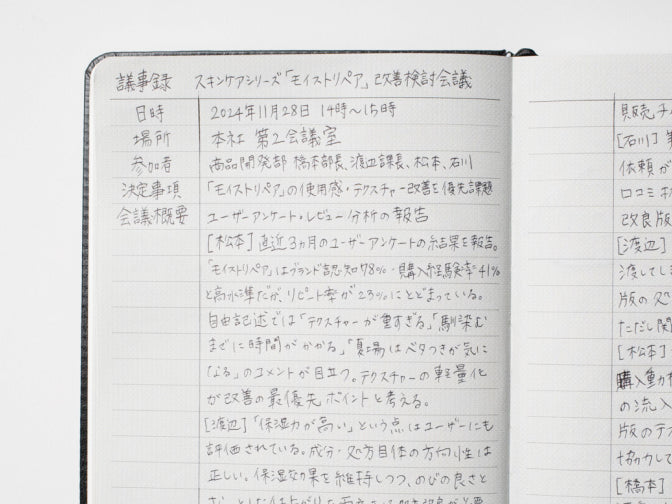 議事録 スキンケアシリーズ「モイストリペア」改善検討会議
日時 2024年11月28日 14時〜15時
場所 本社 第2会議室
参加者 商品開発部 橋本部長、渡辺課長、松本、石川
決定事項 「モイストリペア」の使用感・テクスチャー改善を優先課題
会議概要 ユーザーアンケート・レビュー分析の報告
[松本]直近3ヵ月のユーザーアンケートの結果を報告。
「モイストリペア」はブランド認知78%・購入経験率41%
と高水準だが、リピート率が23%にとどまっている。
自由記述では「テクスチャーが重すぎる」「馴染む
までに時間がかかる」「夏場はベタつきが気に
なる」のコメントが目立つ。テクスチャーの軽量化
が改善の最優先ポイントと考える。
[渡辺]「保湿力が高い」という点はユーザーにも
評価されている。成分・処方自体の方向性は
正しい。保湿効果を維持しつつ、のびの良さと
販売チ
[石川]
依頼が
口コミ
改良版
[渡辺]
渡してし
版の処
ただし関
[松本]
購入動機
の流入
版のテ
協力して
[橋本]